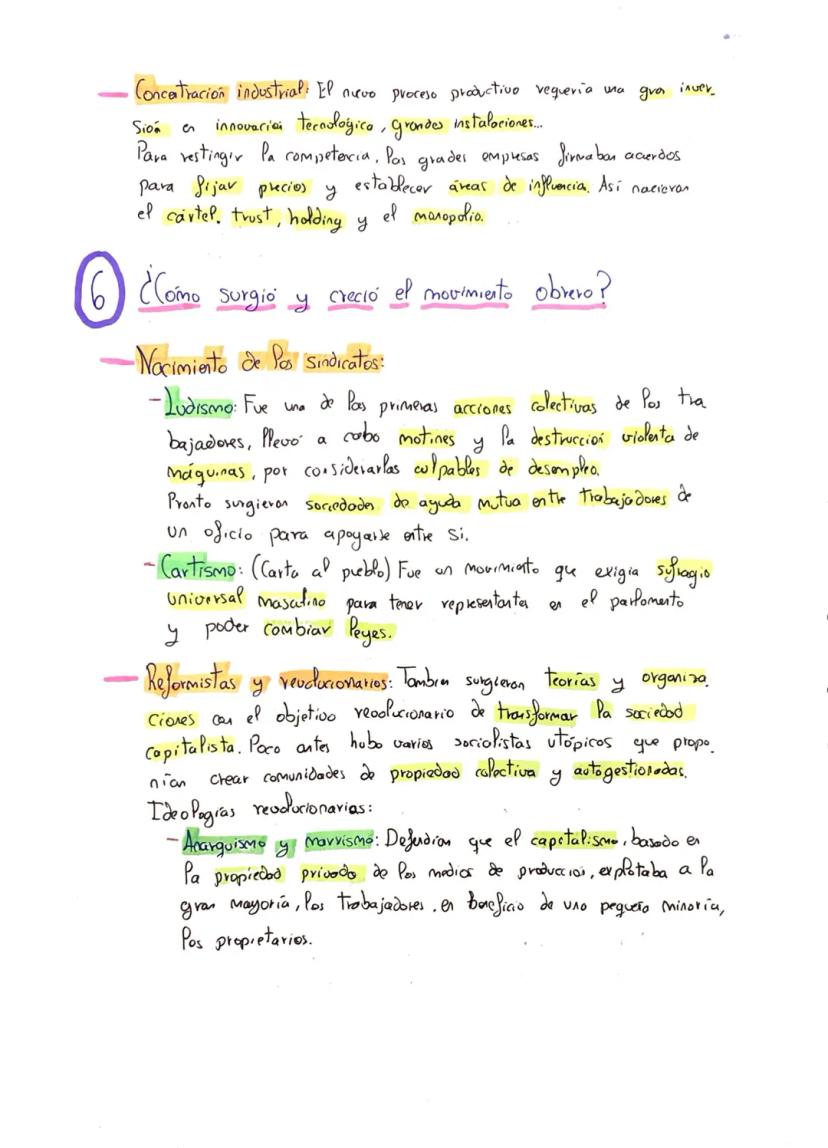 — Concentración industrial: El nuevo proceso productivo requería una gran inver-
sión en innovación tecnológica, grandes instalaciones...
Para restingir la competencia, los grades empresas firmaban acuerdos
para fijar precios y establecer áreas de influencia. Así nacieron
el cártel, trust, holding y el monopolio.
6 ¿Cómo surgió y creció el movimiento obrero?
— Nacimiento de los sindicatos:
- Ludismo: Fue una de las primeras acciones colectivas de los tra
bajadores, llevó a cabo motines y la destrucción violenta de
máquinas, por considerarlas culpables de desempleo.
Pronto surgieron sociedades de ayuda mutua entre trabajadores de
un oficio para apoyarse entre sí.
- Cartismo: (Carta al pueblo) Fue un movimiento que exigía sufragio
universal masculino para tener representantes en el parlamento
y poder cambiar leyes.
— Reformistas y revolucionarios: Tambien surgieron teorías y organiza
ciones con el objetivo revolucionario de transformar la sociedad
capitalista. Poco antes hubo varios socialistas utópicos que propo
nían crear comunidades de propiedad colectiva y autogestionadas.
Ideologías revolucionarias:
- Anarquismo y marxismo: Defendían que el capitalismo, basado en
la propiedad privada de los medios de producción, explotaba a la
gran mayoría, los trabajadores, en beneficio de una pequeña minoría,
los propietarios.